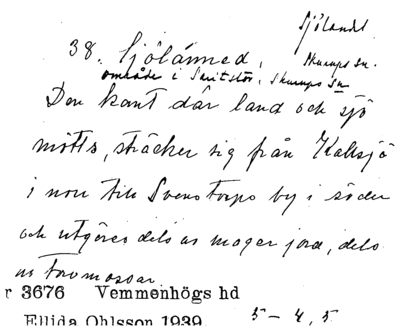 Sjölandet
38. Sjölánned, Skurups sn.
område i Saritslöv, Skurups sn
Den kant där land och sjö
mötts, sträcker sig från Kallsjö
i norr till Svenstorps by i söder
och utgöres dels av mager jord, dels
av torvmossar.
r 3676 Vemmenhögs hd
Ellida Ohlsson 1939. 5-4, 5